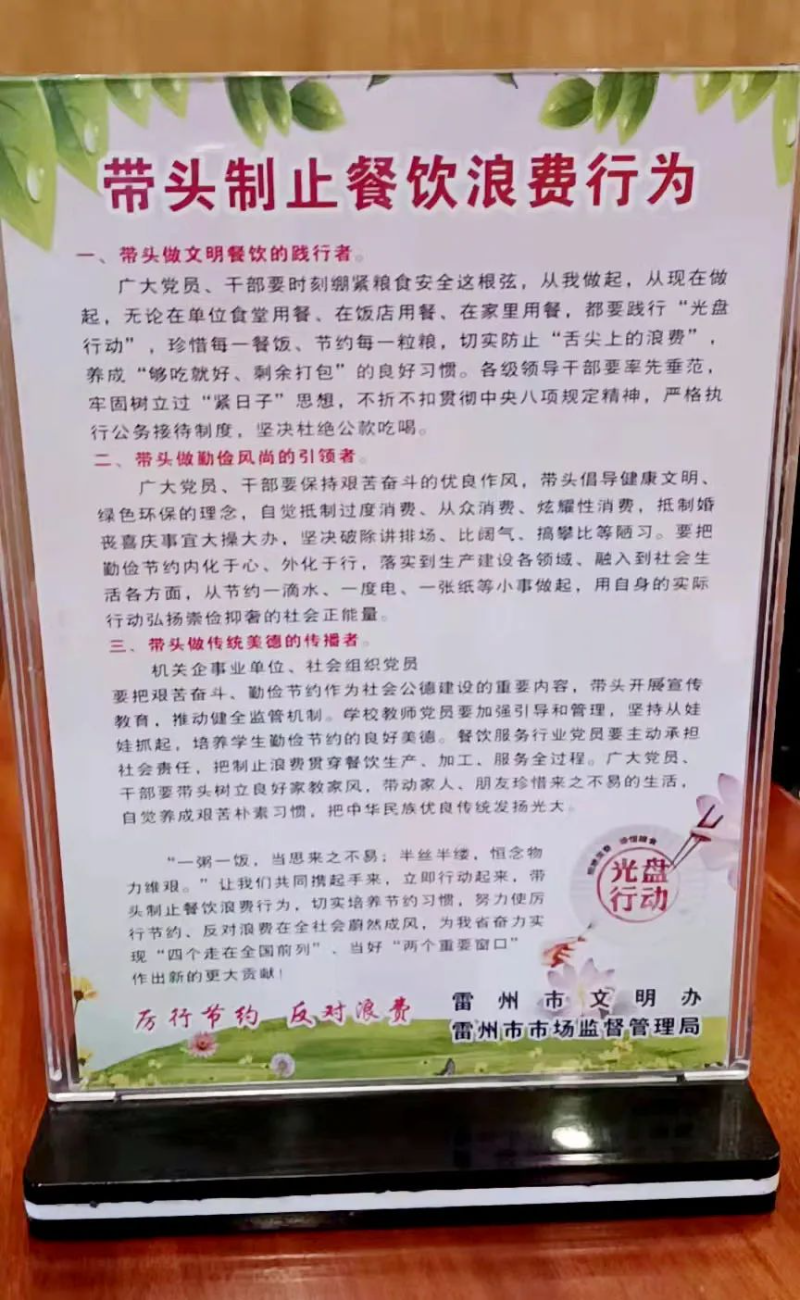 带头制止餐饮浪费行为
一、带头做文明餐饮的践行者。
广大党员、干部要时刻绷紧粮食安全这根弦，从我做起，从现在做
起，无论在单位食堂用餐、在饭店用餐、在家里用餐，都要践行“光盘
行动”，珍惜每一餐饭、节约每一粒粮，切实防止“舌尖上的浪费”，
养成“够吃就好、剩余打包”的良好习惯。各级领导干部要率先垂范，
牢固树立过“紧日子”思想，不折不扣贯彻中央八项规定精神，严格执
行公务接待制度，坚决杜绝公款吃喝。
二、带头做勤俭风尚的引领者。
广大党员、干部要保持艰苦奋斗的优良作风，带头倡导健康文明、
绿色环保的理念，自觉抵制过度消费、从众消费、炫耀性消费，抵制婚
丧喜庆事宜大操大办，坚决破除讲排场、比阔气、搞攀比等陋习。要把
勤俭节约内化于心、外化于行，落实到生产建设各领域、融入到社会生
活各方面，从节约一滴水、一度电、一张纸等小事做起，用自身的实际
行动弘扬崇俭抑奢的社会正能量。
三、带头做传统美德的传播者。
机关企事业单位、社会组织党员
要把艰苦奋斗、勤俭节约作为社会公德建设的重要内容，带头开展宣传
教育，推动健全监管机制。学校教师党员要加强引导和管理，坚持从娃
娃抓起，培养学生勤俭节约的良好美德。餐饮服务行业党员要主动承担
社会责任，把制止浪费贯穿餐饮生产、加工、服务全过程。广大党员、
干部要带头树立良好家教家风，带动家人、朋友珍惜来之不易的生活，
自觉养成艰苦朴素习惯，把中华民族优良传统发扬光大。
“一粥一饭，当思来之不易；半丝半缕，恒念物
力维艰。”让我们共同携起手来，立即行动起来，带
头制止餐饮浪费行为，切实培养节约习惯，努力使厉
行节约、反对浪费在全社会蔚然成风，为我省奋力实
现“四个走在全国前列”、当好“两个重要窗口”
作出新的更大贡献！
光盘
行动
厉行节约 反对浪费
雷州市文明办
雷州市市场监督管理局